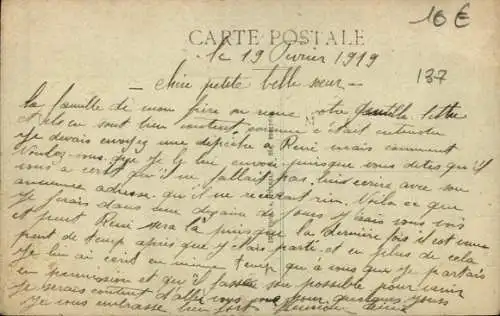 16 €
CARTE POSTALE
le 19 Février 1919
137
- chère petite belle sœur -
La famille de mon frère on reçu votre gentille lettre
et ils en sont bien content comme c'était entendu
Je devais envoyez une dépêche a René mais comment
Voulez-vous que Je la lui envoie puisque vous dites qu'il
vous a écrit qu'il ne fallait pas lui écrire avec son
ancienne adresse qu'il ne recevrait rien. Voila ce que
Je ferais dans une dizaine de Jours J irais vous voir
et peut René sera la puisque la dernière fois il est venu
peut de temp après que J étais parti et en plus de cela
Je lui ai écrit en même temp qu'à vous que Je partais
en permission et qu'il fasse son possible pour venir
Je serais content d'aller vous voir pour quelques Jours
Je vous embrasse bien fort